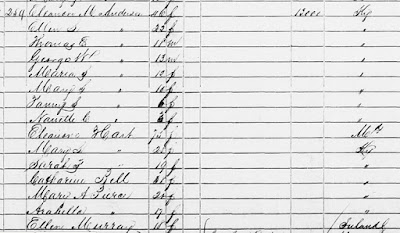 269 Eleanor M Anderson 46 f 12000 Ky
Ellen S " 22 f "
Thomas E " 15 m "
George W " 13 m "
Maria J " 12 f "
Mary J " 10 f "
Fanny J " 6 f "
Nanette C " f "
Eleanor Hart f Md
Mary " 20 f Ky
Sarah J " 19 f "
Catharine Bell f "
Mary A Pierce 20 f "
Arabella " f "
Ellen Murray f Ireland